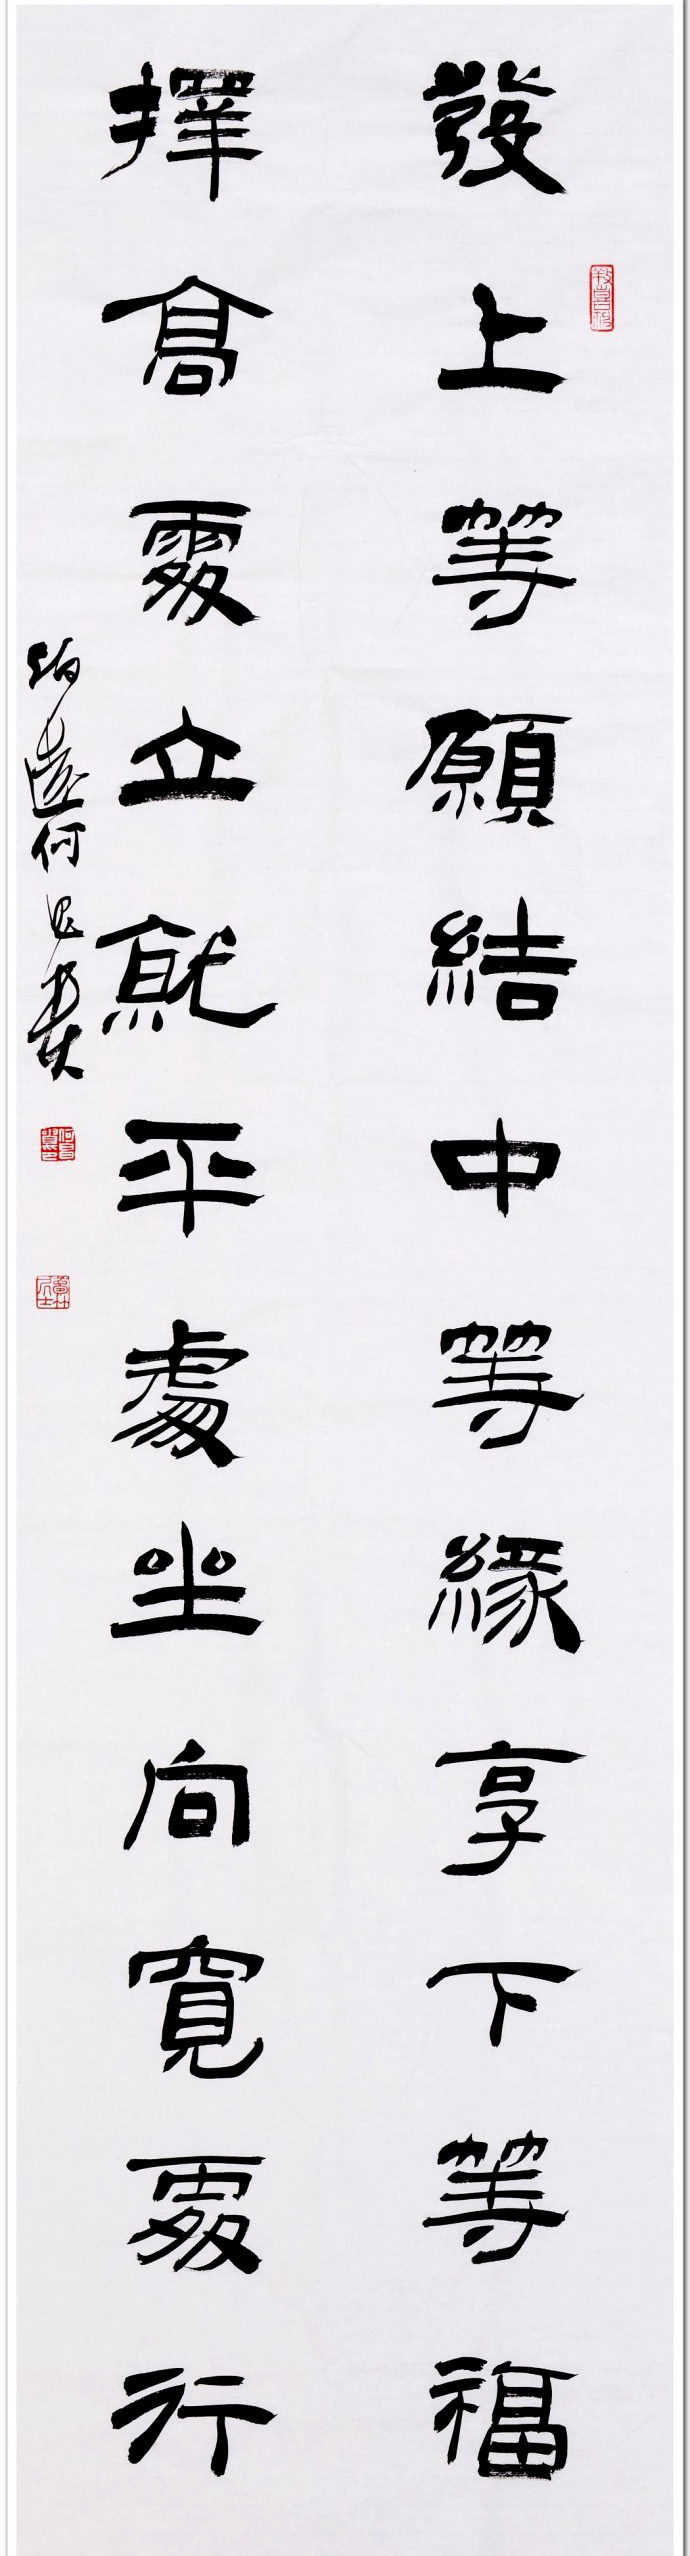 發上等願結中等緣享下等福
擇高處立就平處坐向寬處行